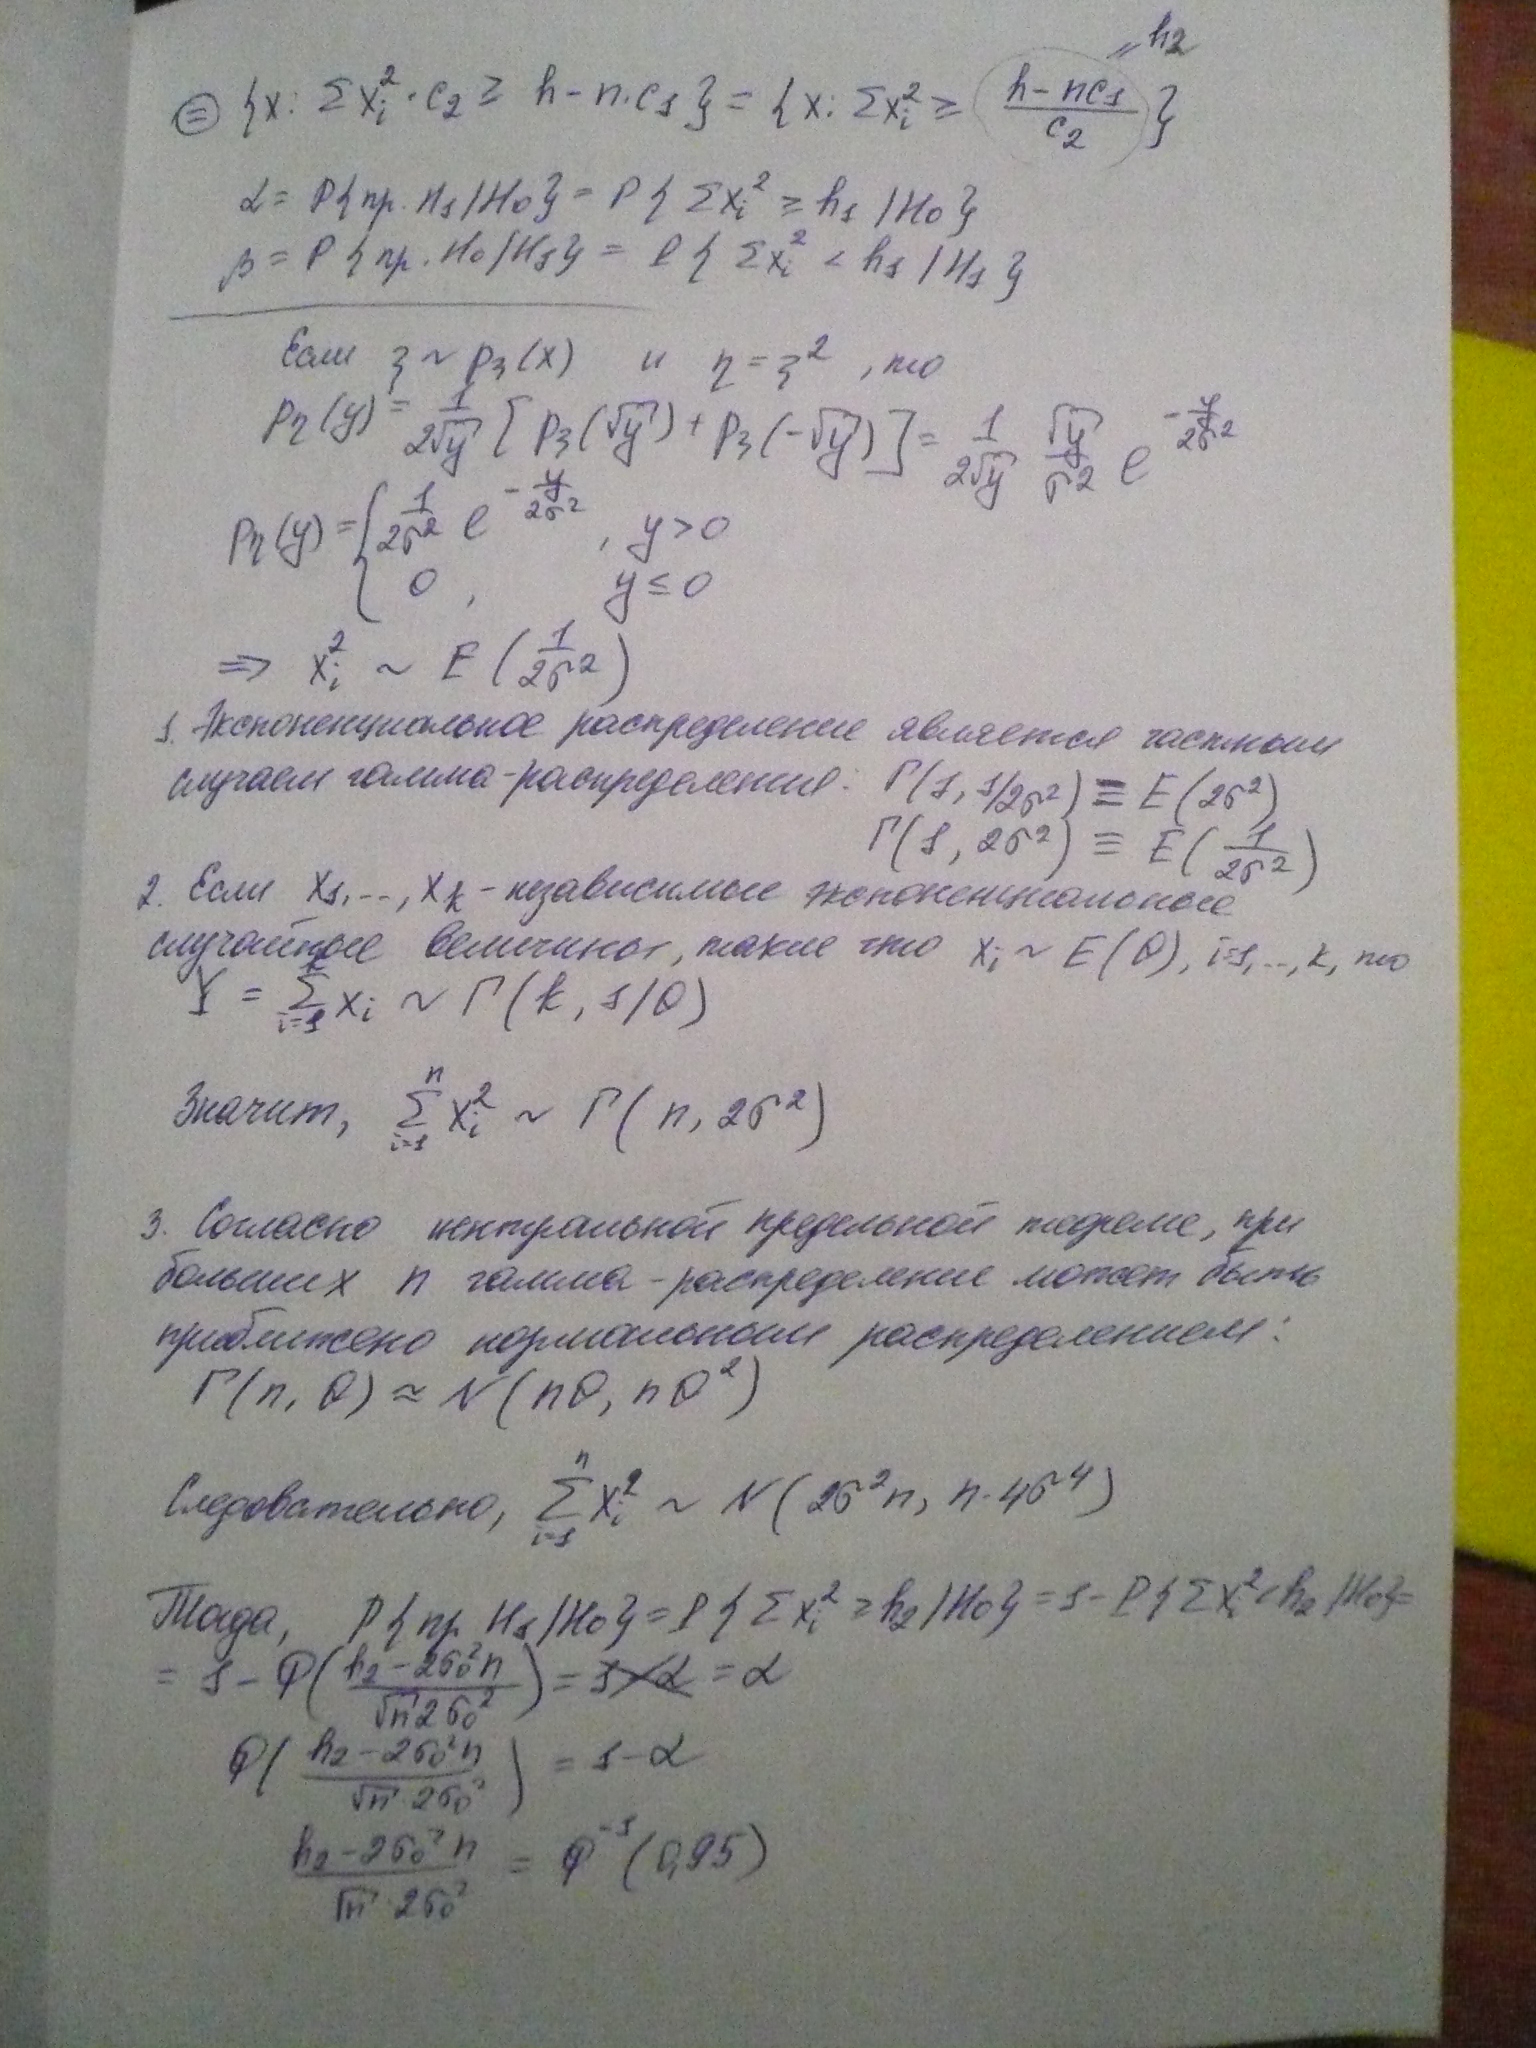 = h₂
⊜ {x: Σxᵢ²·c₂ ≥ h - n·c₁} = {x: Σxᵢ² ≥ (h - nc₁)/c₂}
α = P{пр. H₁/H₀} = P{Σxᵢ² ≥ h₁/H₀}
β = P{пр. H₀/H₁} = P{Σxᵢ² < h₁/H₁}
Если ξ ~ p_ξ(x) и η = ξ², то
p_η(y) = 1/(2√y) [p_ξ(√y) + p_ξ(-√y)] = 1/(2√y) √y/σ² e^(-y/2σ²)
p_η(y) = { 1/(2σ²) e^(-y/2σ²), y > 0
0, y ≤ 0
⇒ xᵢ² ~ E(1/2σ²)
1. Экспоненциальное распределение является частным
случаем гамма-распределения: Γ(1, 1/2σ²) ≡ E(2σ²)
Γ(1, 2σ²) ≡ E(1/2σ²)
2. Если x₁,..., x_k - независимые экспоненциальные
случайные величины, такие что xᵢ ~ E(θ), i=1,..., k, то
Y = Σ_{i=1}^{k} xᵢ ~ Γ(k, 1/θ)
Значит, Σ_{i=1}^{n} xᵢ² ~ Γ(n, 2σ²)
3. Согласно центральной предельной теореме, при
больших n гамма-распределение может быть
приближено нормальным распределением:
Γ(n, θ) ≈ N(nθ, nθ²)
Следовательно, Σ_{i=1}^{n} xᵢ² ~ N(2σ²n, n·4σ⁴)
Тогда, P{пр H₁/H₀} = P{Σxᵢ² ≥ h₂/H₀} = 1 - P{Σxᵢ² < h₂/H₀} =
= 1 - Φ((h₂ - 2σ₀²n)/(√n 2σ₀²)) = 1-α = α
Φ((h₂ - 2σ₀²n)/(√n·2σ₀²)) = 1-α
(h₂ - 2σ₀²n)/(√n·2σ₀²) = Φ⁻¹(0,95)